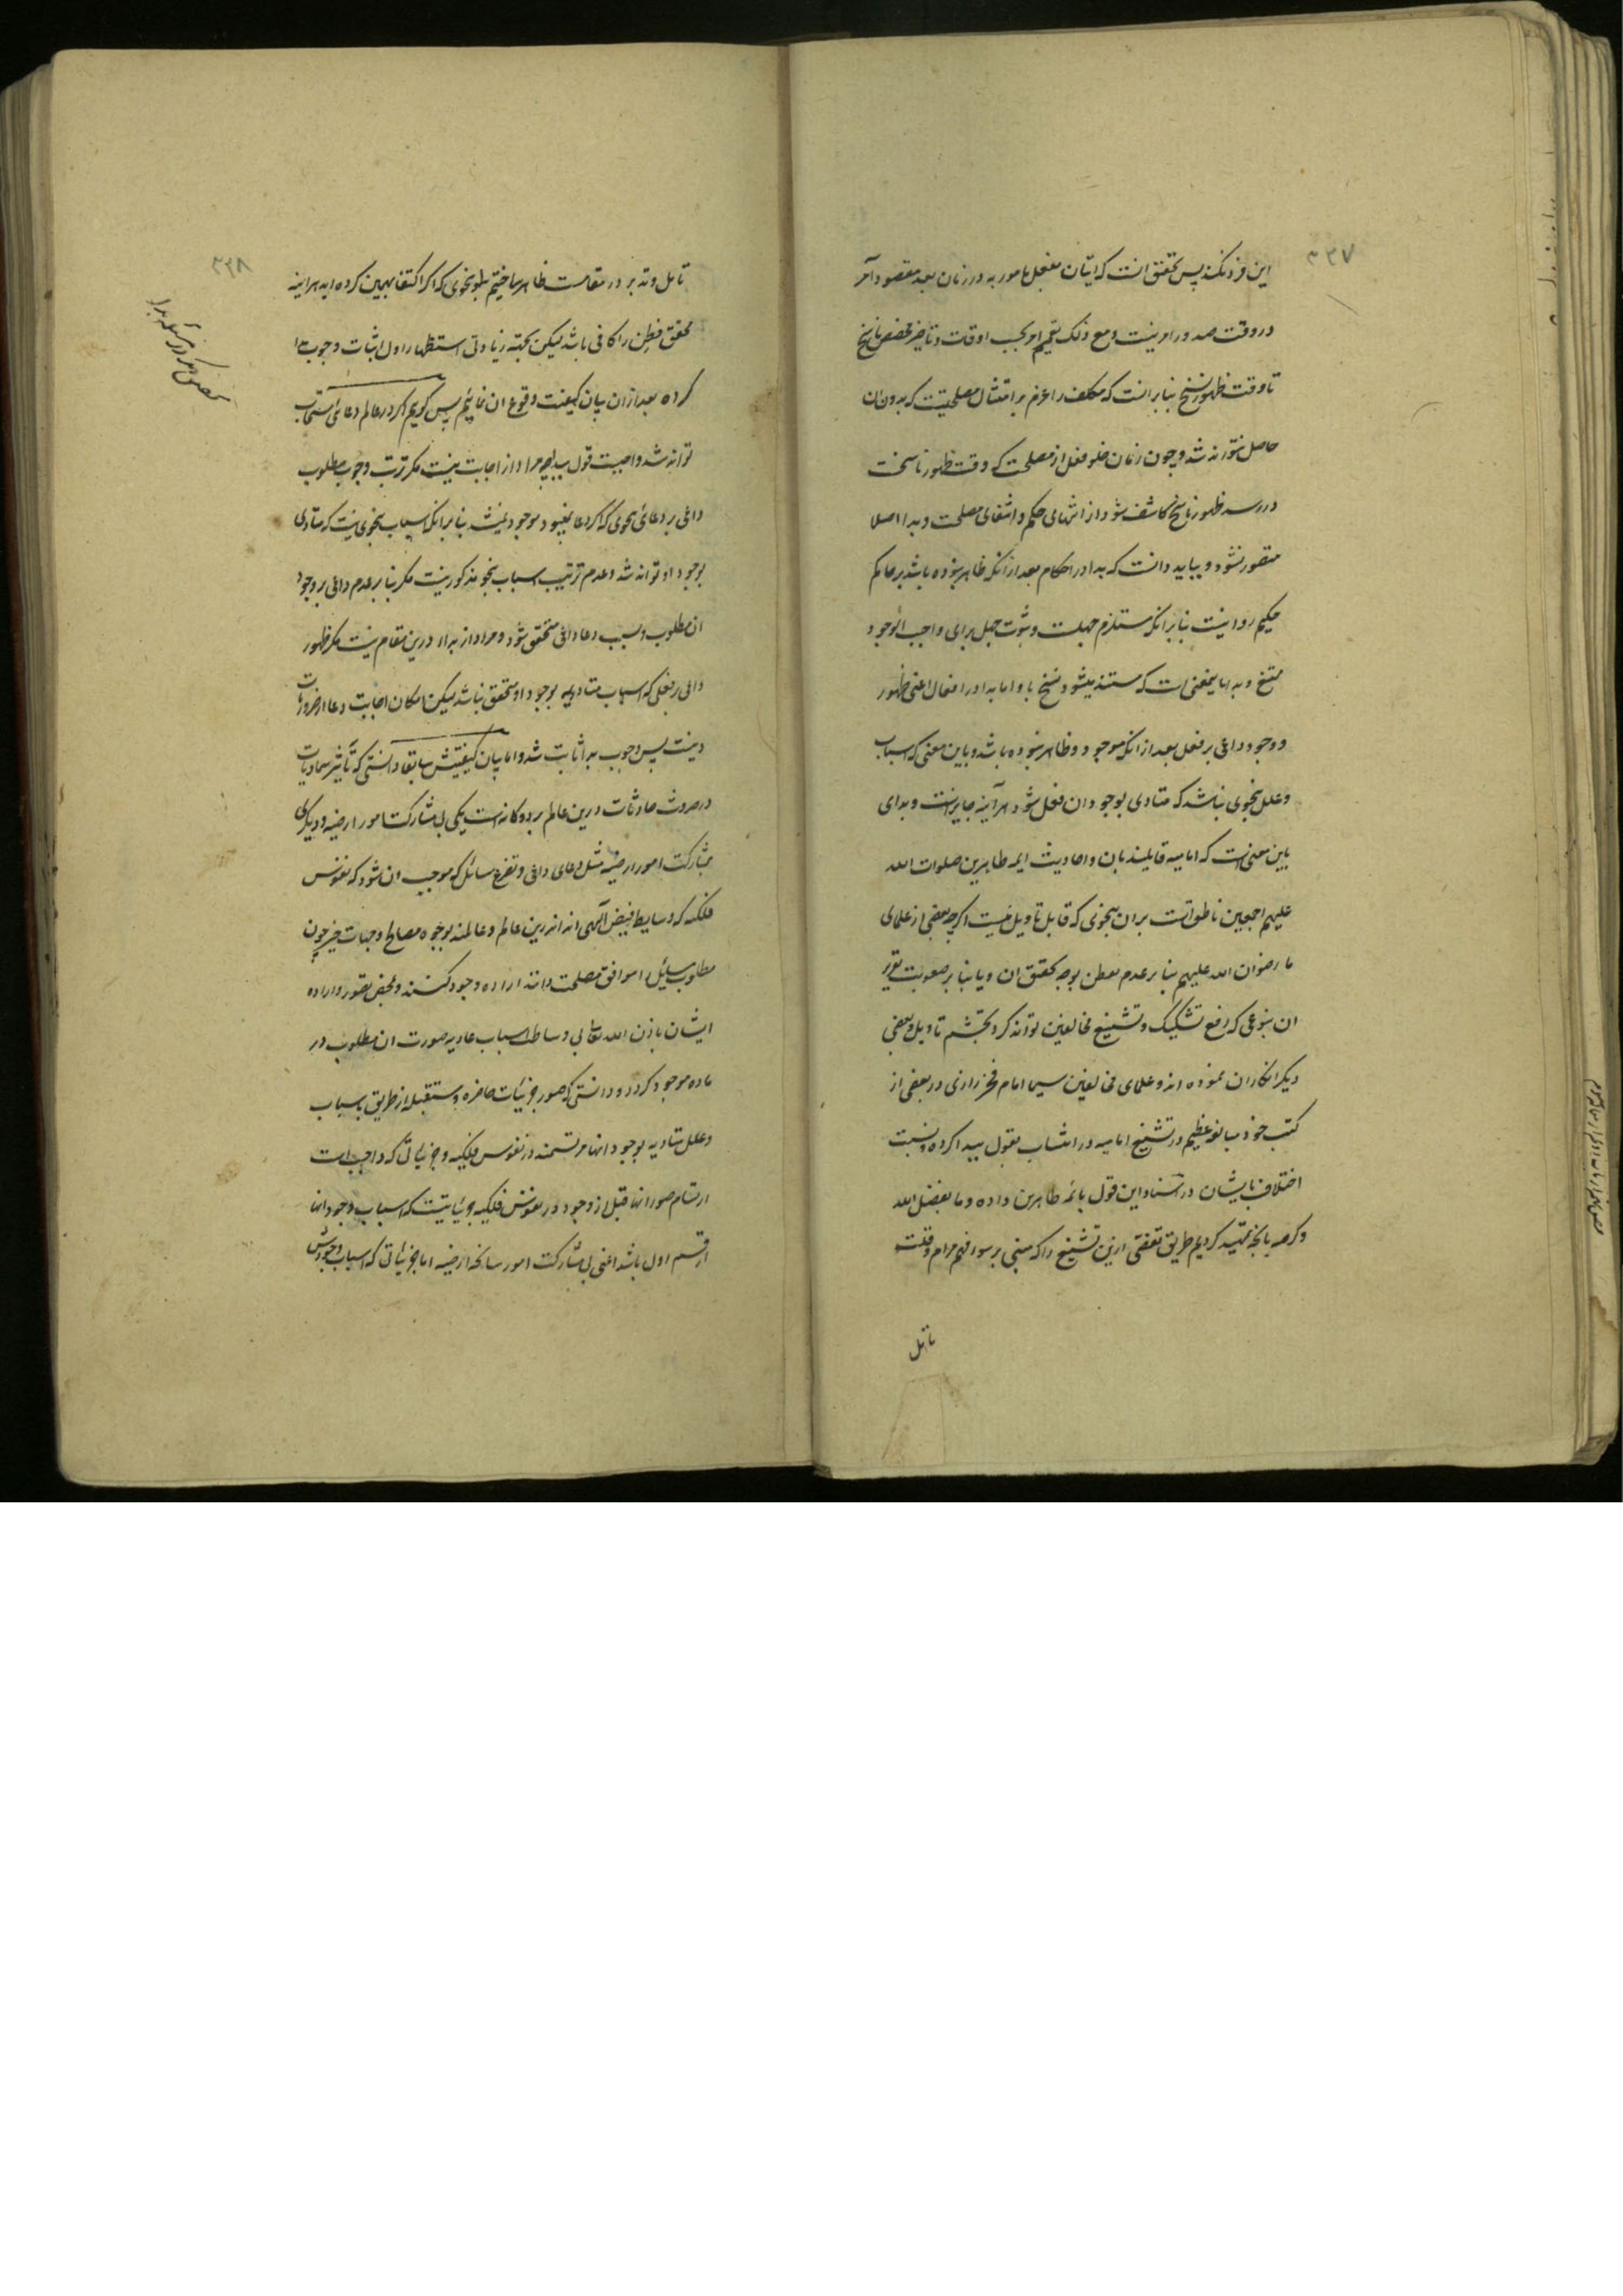 ۳۳۷
این فرق نکند پس تحقق انست که اتیان بفعل مامور به در زمان بعد مقصود آمر
در وقت صدور امر نیست و مع ذلک تعمیم امر بحسب اوقات و تاخیر مخصص ناسخ
تا وقت ظهور نسخ بنابر انست که مکلف را عزم بر امتثال مصلحتیست که بدون ان
حاصل نتواند شد و چون زمان خلو فعل از مصلحت که وقت ظهور ناسخست
در رسد ظهور ناسخ کاشف شود از انتهای حکم و انتفای مصلحت و بدا اصلا
متصور نشود و بباید دانست که بدا در احکام بعد از انکه ظاهر نبوده باشد بر حاکم
حکیم روا نیست بنابر انکه مستلزم جهلست و ثبوت جهل برای واجب الوجود
ممتنع و بدا باینمعنی است که مستند میشود نسخ باو اما بدا در افعال اعنی ظهور
و وجود داعی بر فعل بعد از انکه موجود و ظاهر نبوده باشد و باین معنی که اسباب
و علل بنحوی نباشد که متادی بوجود ان فعل شود هر آینه جایز است و بدای
باین معنی است که امامیه قایلند بان و احادیث ایمه طاهرین صلوات الله
علیهم اجمعین ناطق است بران بنحوی که قابل تاویل نیست اگرچه بعضی از علمای
ما رضوان الله علیهم بنابر عدم تفطن بوجه تحقق ان و یا بنابر صعوبت تقریر
ان بنوعی که رفع تشکیک و تشنیع مخالفین تواند کرد تجشم تاویل و بعضی
دیگر انکار ان نموده اند و علمای مخالفین سیما امام فخر رازی در بعضی از
کتب خود مبالغه عظیم در تشنیع امامیه در انتساب بقول ببدا کرده و نسبت
اختلاف بایشان در اسناد این قول بائمه طاهرین داده و ما بفضل الله
و کرمه بانچه تمهید کردیم طریق تفصی ازین تشنیع را که مبنی بر سوء فهم مرام و قلت
تامل
۳۳۸
تامل و تدبر در مقامست ظاهر ساختیم بطور بنحوی که اگر اکتفا بهمین کرده اید هراینه
محقق فطن را کافی باشد لیکن بجهة زیادتی استظهار اول اثبات وجوب بدا
کرده بعد ازان بیان کیفیت وقوع ان نمائیم پس گوییم اگر در عالم دعای مستجاب
تواند شد واجبست قول ببدا چه مراد از اجابت نیست مگر ترتب وجوب مطلوب
داعی بر دعائی بنحوی که اگر دعا نمیبود موجود نمیشد بنابر انکه اسباب بنحوی نیست که متادی
بوجود او تواند شد و عدم ترتیب اسباب بنحو مذکور نیست مگر بنابر عدم داعی بر وجود
ان مطلوب و بسبب دعا داعی متحقق شود و مراد از بدا درین مقام نیست مگر ظهور
داعی بر فعلی که اسباب متادیه بوجود او متحقق نباشد لیکن امکان اجابت دعا از ضروریات
دینست پس وجوب بدا ثابت شد و اما بیان کیفیتش سابقا دانستی که تاثیر سماویات
در حدوث حادثات درین عالم بر دو گانه است یکی بی مشارکت امور ارضیه و دیگری
بمشارکت امور ارضیه مثل دعای داعی و تضرع سائل که موجب ان شود که نفوس
فلکیه که وسایط فیض الهی اند اندرین عالم و عالمند بوجوه مصالح و جهات خیر چون
مطلوب سائل را موافق مصلحت دانند اراده وجود کنند و بمحض تصور و اراده
ایشان باذن الله تعالی و ساطه اسباب عادیه صورت ان مطلوب در
ماده موجود گردد و دانستی که صور جزئیات حاضره و مستقبله از طریق اسباب
و علل متادیه بوجود انها مرتسمند در نفوس فلکیه و جزئیاتی که واجب است
ارتسام صور انها قبل از وجود در نفوس فلکیه جزئیاتیست که اسباب وجود انها
از قسم اول باشد اعنی بی مشارکت امور سانحه ارضیه اما جزئیاتی که اسباب وجودش